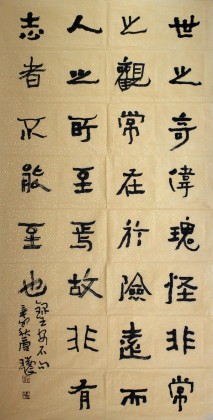 世之奇偉瑰怪非常
之觀常在於險遠而
人之所至焉故非有
志者不能至也
錄王安石句